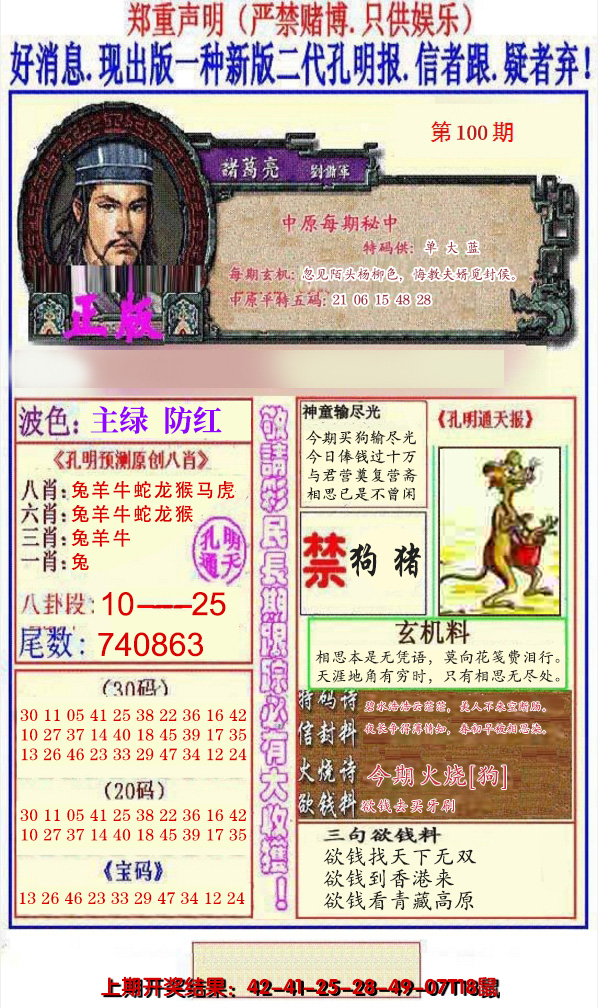 郑重声明（严禁赌博.只供娱乐）
好消息.现出版一种新版二代孔明报.信者跟.疑者弃!
第100期
諸葛亮 劉備軍
中原每期秘中
特码供：单大蓝
每期玄机：忽见陌头杨柳色，悔教夫婿觅封侯。
中原平特五码: 21 06 15 48 28
正版
波色: 主绿 防红
《孔明预测原创八肖》
八肖:兔羊牛蛇龙猴马虎
六肖:兔羊牛蛇龙猴
三肖:兔羊牛
一肖:兔
孔明
通天
八卦段: 10——25
尾数: 740863
(30码)
30 11 05 41 25 38 22 36 16 42
10 27 37 14 40 18 45 39 17 35
13 26 46 23 33 29 47 34 12 24
(20码)
30 11 05 41 25 38 22 36 16 42
10 27 37 14 40 18 45 39 17 35
《宝码》
13 26 46 23 33 29 47 34 12 24
敬請彩民長期跟踪必有大收獲！
神童输尽光
今期买狗输尽光
今日俸钱过十万
与君营奠复营斋
相思已是不曾闲
《孔明通天报》
禁 狗 猪
玄机料
相思本是无凭语，莫向花笺费泪行。
天涯地角有穷时，只有相思无尽处。
特码诗 碧水浩浩云茫茫，美人不来空断肠。
信封料 夜长争得薄情知，春初早被相思染。
火烧诗 今期火烧[狗]
欲钱料 欲钱去买牙刷
三句欲钱料
欲钱找天下无双
欲钱到香港来
欲钱看青藏高原
上期开奖结果：42-41-25-28-49-07T18鼠